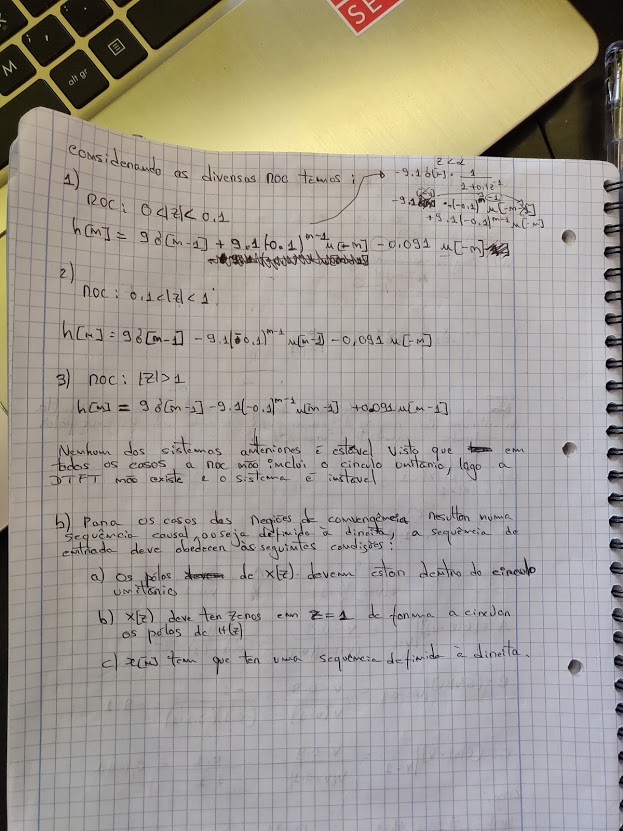 M
alt gr
SE
considerando as diversas ROC temos :
z < α
-9.1 δ[n] · 1 / 1+0,1z⁻¹
-9.1 · -(-0,1)ⁿ u[-n-1]
+9.1(-0.1)ⁿ⁻¹ u[-n]
1)
ROC: 0<|z|< 0.1
h[n] = 9δ[n-1] + 9.1(-0.1)ⁿ⁻¹ u[-n] - 0.091 u[-n]
2)
ROC: 0.1<|z|<1
h[n] = 9δ[n-1] - 9.1(-0.1)ⁿ⁻¹ u[n-1] - 0,091 u[-n]
3) ROC: |z|>1
h[n] = 9δ[n-1] - 9.1(-0.1)ⁿ⁻¹ u[n-1] +0.091 u[n-1]
Nenhum dos sistemas anteriores é estável visto que em
todos os casos a ROC não inclui o circulo unitário, logo a
DTFT não existe e o sistema é instavel
b) Para os casos das Regiões de convergência resultar numa
sequência causal, ou seja definida à direita, a sequência de
entrada deve obedecer às seguintes condições:
a) Os pólos de X(z) devem estar dentro do circulo
unitário
b) X(z) deve ter zeros em z=1 de forma a
os pólos de H(z)
c) x[n] tem que ter uma sequência definida à direita.